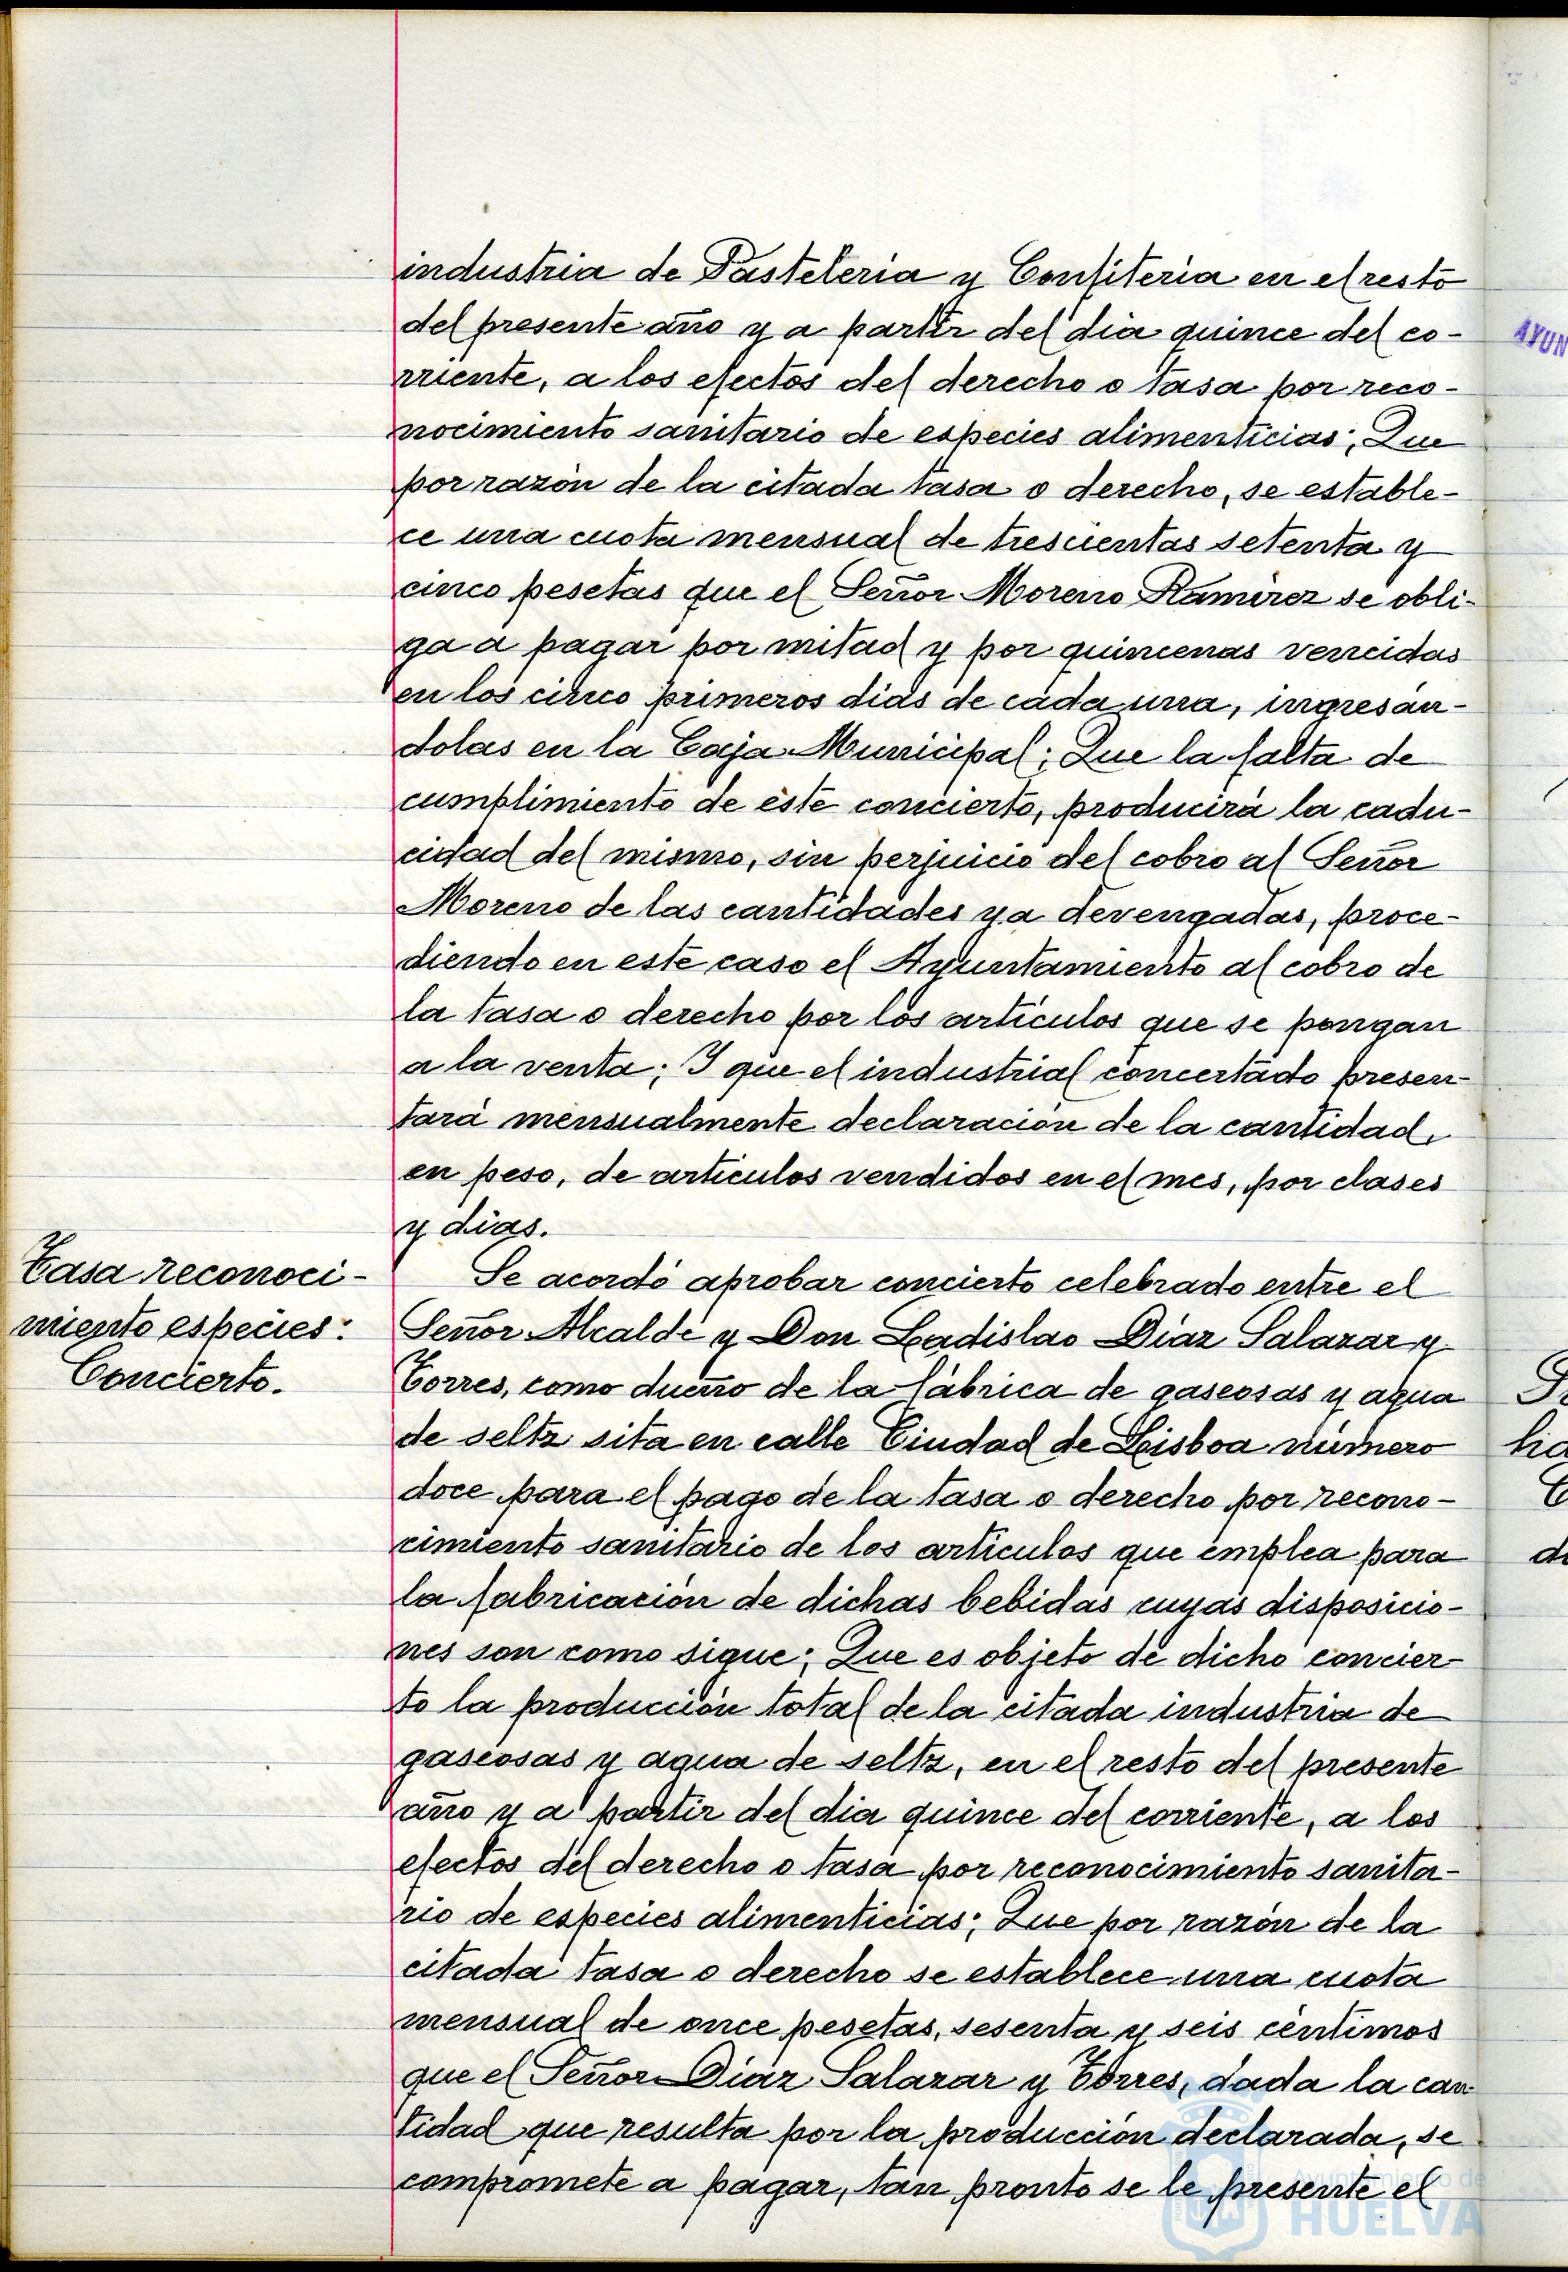 industria de Pasteleria y Confiteria en el resto
del presente año y a partir del dia quince del co-
rriente, a los efectos del derecho o tasa por reco-
nocimiento sanitario de especies alimenticias; Que
por razón de la citada tasa o derecho, se estable-
ce una cuota mensual de trescientas setenta y
cinco pesetas que el Señor Moreno Ramirez se obli-
ga a pagar por mitad y por quincenas vencidas
en los cinco primeros dias de cada una, ingresán-
dolas en la Caja Municipal; Que la falta de
cumplimiento de éste concierto, producirá la cadu-
cidad del mismo, sin perjuicio del cobro al Señor
Moreno de las cantidades ya devengadas, proce-
diendo en este caso el Ayuntamiento al cobro de
la tasa o derecho por los articulos que se pongan
a la venta; Y que el industrial concertado presen-
tará mensualmente declaración de la cantidad,
en peso, de articulos vendidos en el mes, por clases
y dias.
Tasa reconoci-
miento especies:
Concierto.
Se acordó aprobar concierto celebrado entre el
Señor Alcalde y Don Ladislao Diaz Salazar y
Torres, como dueño de la fábrica de gaseosas y agua
de seltz sita en calle Ciudad de Lisboa número
doce para el pago de la tasa o derecho por recono-
cimiento sanitario de los articulos que emplea para
la fabricación de dichas bebidas cuyas disposicio-
nes son como sigue; Que es objeto de dicho concier-
to la producción total de la citada industria de
gaseosas y agua de seltz, en el resto del presente
año y a partir del dia quince del corriente, a los
efectos del derecho o tasa por reconocimiento sanita-
rio de especies alimenticias; Que por razón de la
citada tasa o derecho se establece una cuota
mensual de once pesetas, sesenta y seis céntimos
que el Señor Diaz Salazar y Torres, dada la can-
tidad que resulta por la producción declarada, se
compromete a pagar, tan pronto se le presente el
AYUN
Ayuntamiento de
HUELVA